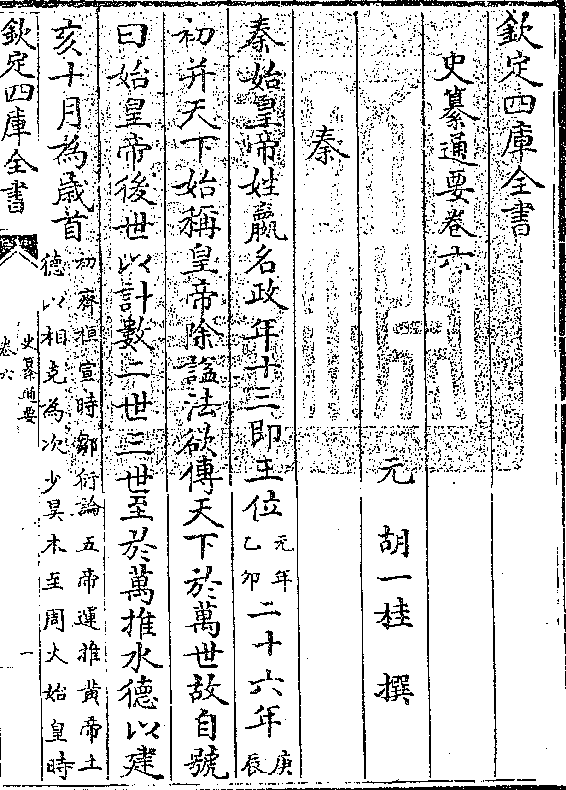 欽定四庫全書
史纂通要卷六
元 胡一桂 撰
秦
秦始皇帝姓嬴名政年十三即王位元年乙卯二十六年庚辰
初并天下始稱皇帝除諡法欲傳天下於萬世故自號
曰始皇帝後世以計數二世三世至於萬推水德以建
亥十月為歳首初齊桓宣時鄒衍論五帝運推黄帝土
德以相克為次少昊木至周火始皇時
欽定四庫全書
史纂通要
卷六
一